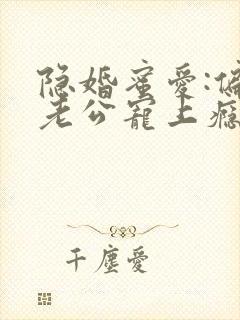 隐婚蜜爱:偏
老公宠上瘾
千尘爱